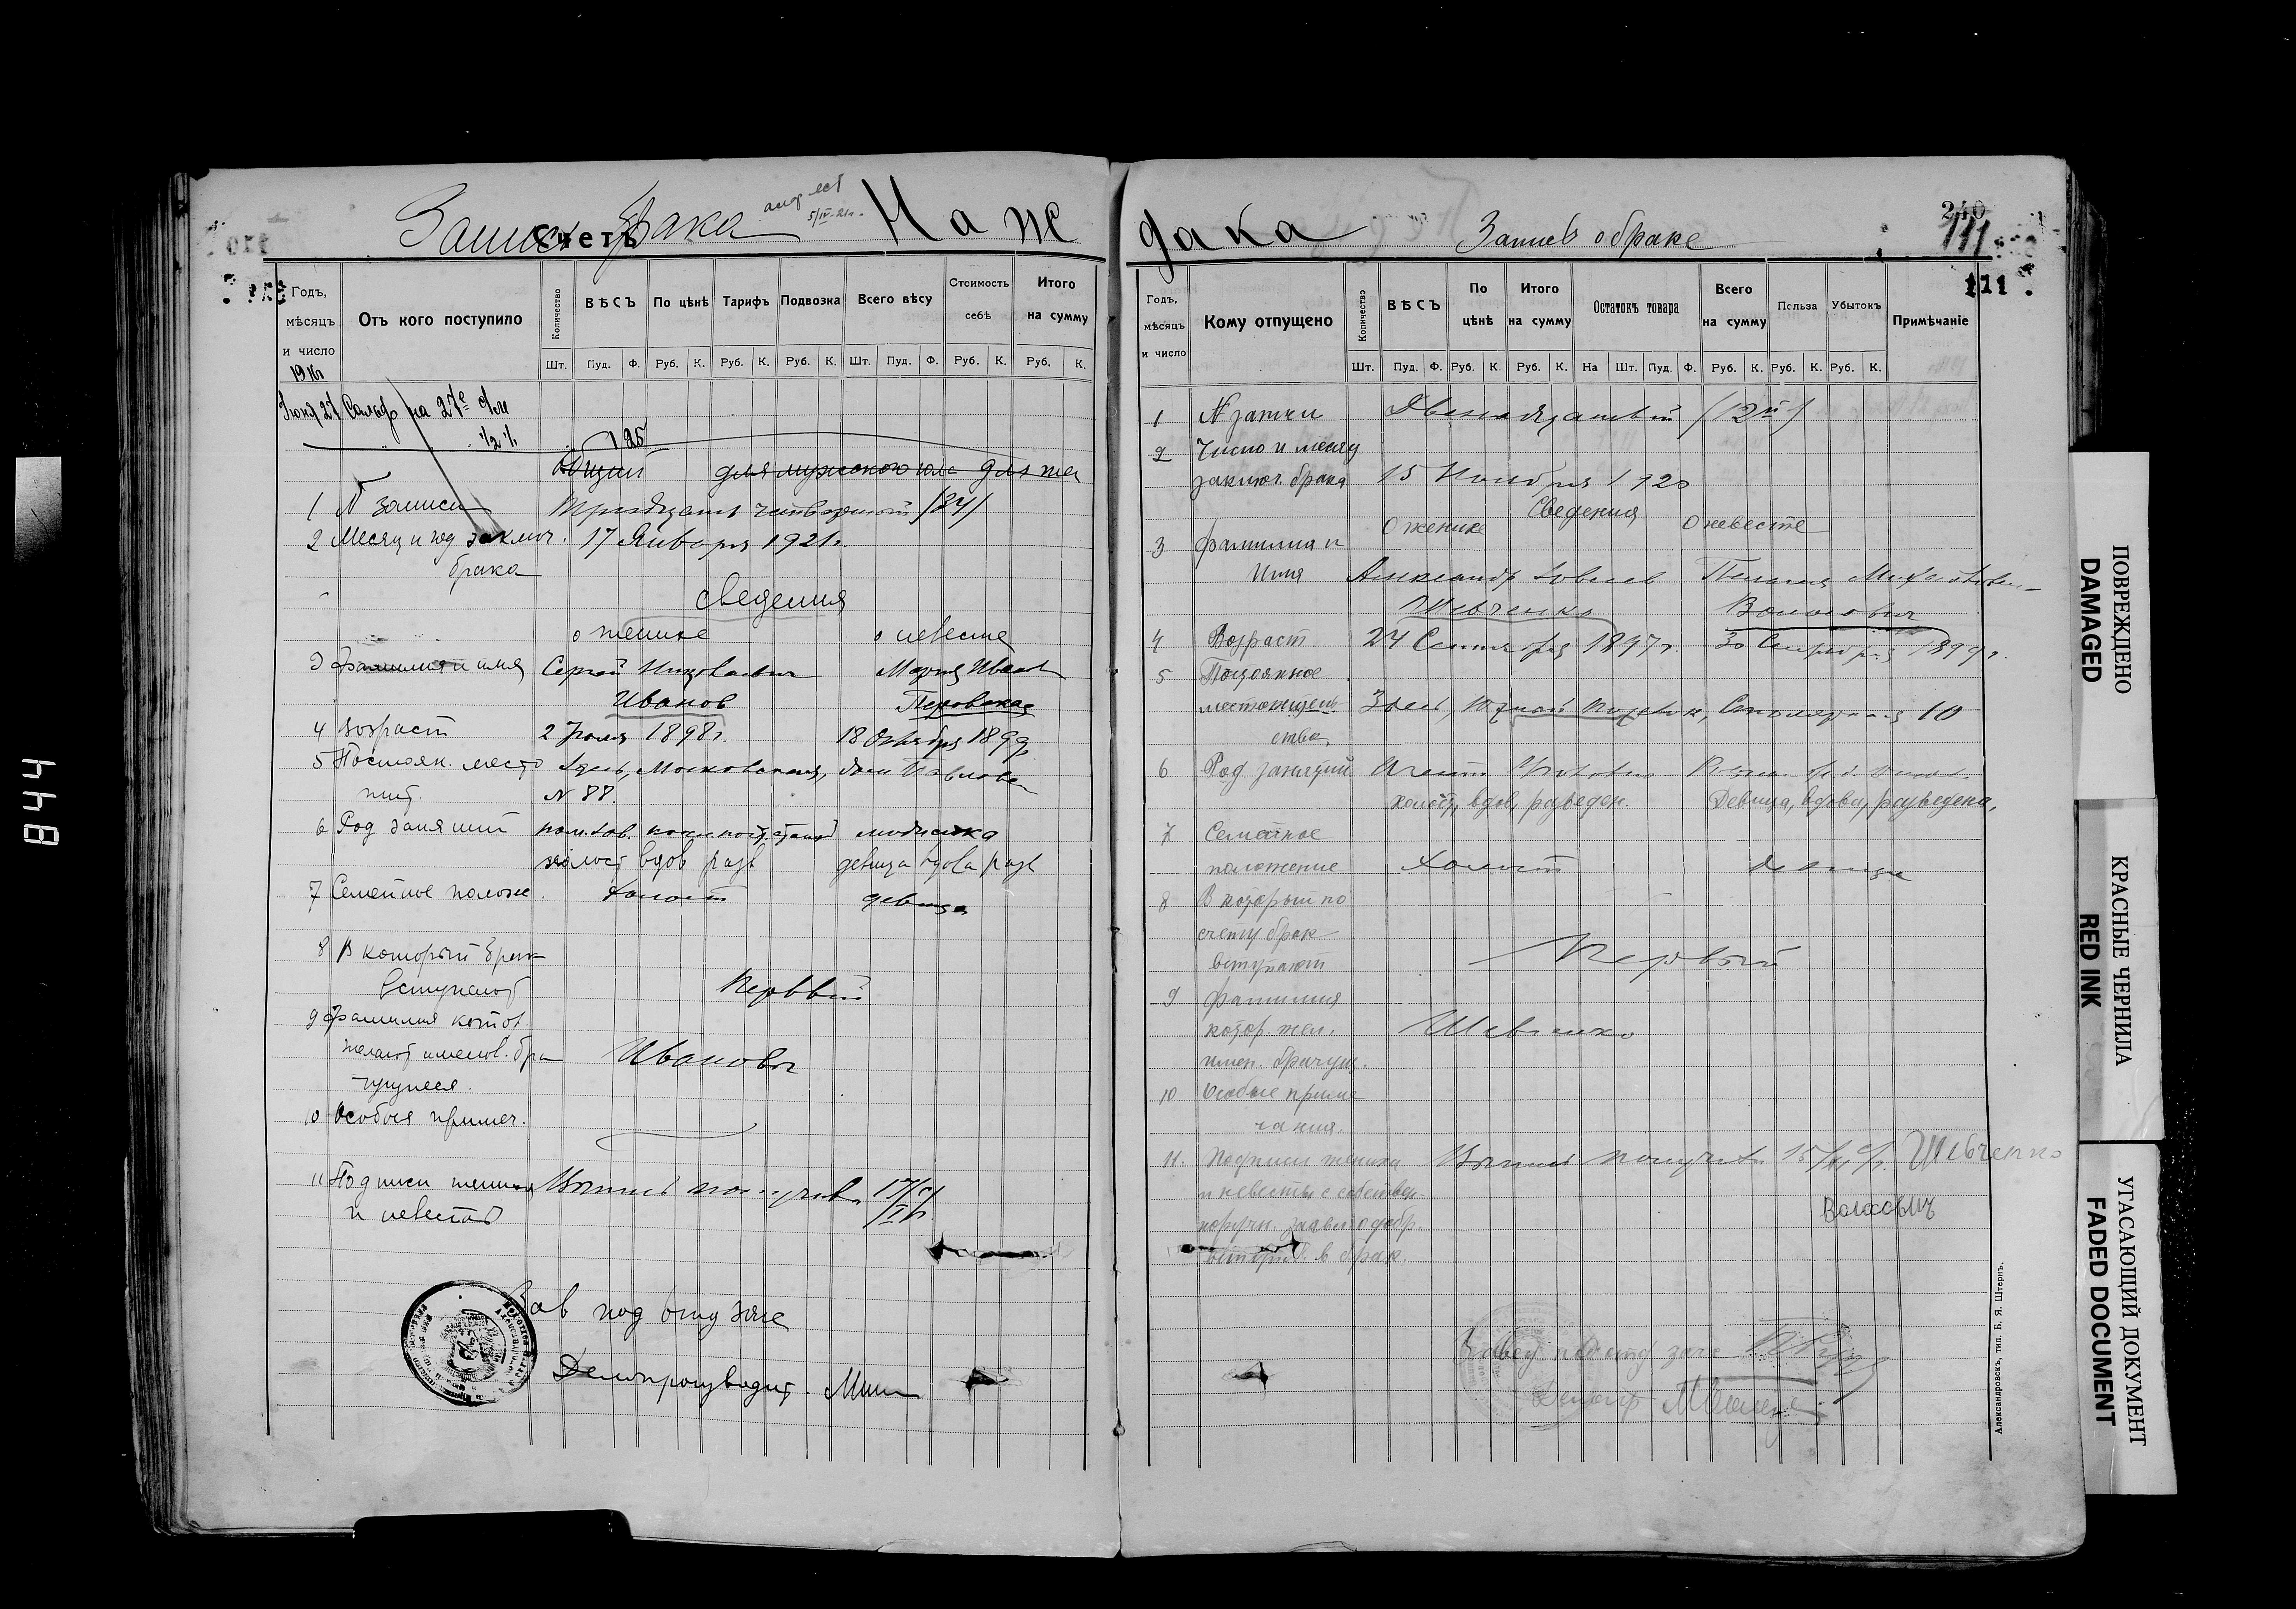 Запись брака
5/IV-21г.
Наждака
Счетъ
Годъ, мѣсяцъ и число
Отъ кого поступило
Количество
ВѢСЪ
По цѣнѣ
Тарифъ
Подвозка
Всего вѣсу
Стоимость себѣ
Итого на сумму
Шт. Пуд. Ф. Руб. К. Руб. К. Руб. К. Шт. Пуд. Ф. Руб. К. Руб. К.
1916
Июня 27 на 27е с/м
1/2 %
125
общий для мужского для
1 N записи Тридцать четвертый (34)
2 Месяц и год заключ. 17 Января 1921г.
брака
Сведения
о женихе о невесте
3 Фамилия и имя Сергей Николаевич Мария Иван
Иванов Перовская
4 возраст 2 Июля 1898г. 18 Октября 1899г.
5 Постоян. место Здесь, Московская, дом Павлова
жит. N 88.
6 Род занятий модистка
холост вдов разв девица вдова разв
7 Семейное полож. холост девица
8 В который брак
вступают Первый
9 Фамилия котор
желают именов. бра Ивановы
чущиеся.
10 Особыя примеч.
11 Подписи жениха Выпись получил 17/I
и невесты
Зав под отд загс
Делопроизводит.
Запись о браке
240
111
111
Годъ, мѣсяцъ и число
Кому отпущено
Количество
ВѢСЪ
По цѣнѣ
Итого на сумму
Остатокъ товара
Всего на сумму
Польза
Убытокъ
Примѣчаніе
Шт. Пуд. Ф. Руб. К. Руб. К. На Шт. Пуд. Ф. Руб. К. Руб. К. Руб. К.
1 N записи Двенадцатый (12й)
2 Число и месяц
заключ. брака 15 Ноября 1920
Сведения
О женихе О невесте
3 Фамилия и
Имя Александр Пелагея Михайловна
Шевченко Волосович
4 Возраст 24 Сентября 1897г. 30 Сентября 1899г.
5 Постоянное
местожитель Здесь, Южный Поселок, Столярная 10
ство.
6 Род занятий Агент
холост, вдов, разведен. Девица, вдова, разведена,
7 Семейное
положение холост девица
8 В который по
счету брак
вступают Первый
9 Фамилия
котор. жел. Шевченко
имен. брачущ.
10 Особые приме
чания.
11. Подписи жениха Выпись получил 15/XI Шевченко
и невесты с собствен.
Волосович
в брак.
Завед подотд загс
Делопр
Александровскъ, тип. Б. Я. Штернъ.
ПОВРЕЖДЕНО
DAMAGED
КРАСНЫЕ ЧЕРНИЛА
RED INK
УГАСАЮЩИЙ ДОКУМЕНТ
FADED DOCUMENT
844